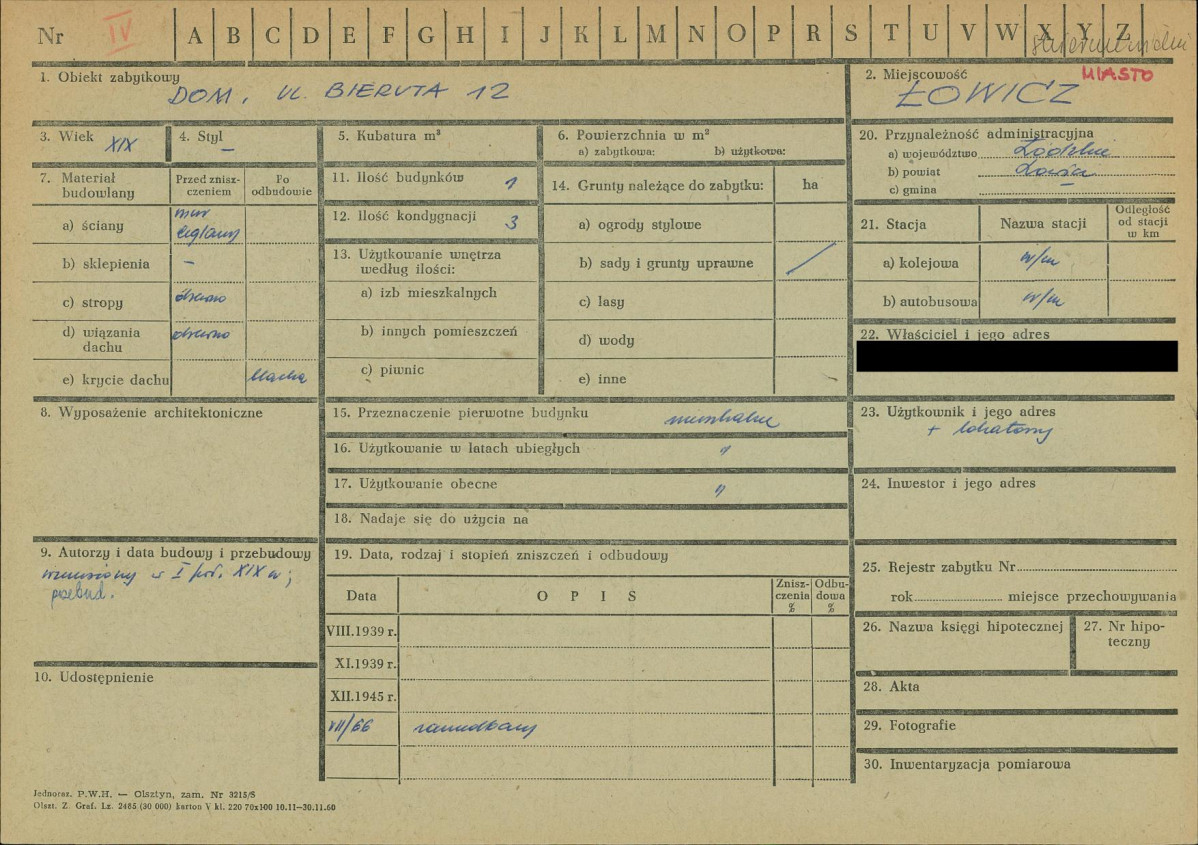 Nr IV A B C D E F G H I J K L M N O P R S T U V W X Y Z
1. Obiekt zabytkowy
DOM, UL. BIERUTA 12
2. Miejscowość MIASTO
ŁOWICZ
3. Wiek XIX
4. Styl –
5. Kubatura m³
6. Powierzchnia w m²
a) zabytkowa: b) użytkowa:
20. Przynależność administracyjna
a) województwo Łódzkie
b) powiat Łowicz
c) gmina –
7. Materiał budowlany
Przed znisz-
czeniem
Po
odbudowie
a) ściany mur ceglany
b) sklepienia –
c) stropy drewno
d) wiązania
dachu drewno
e) krycie dachu blacha
11. Ilość budynków 1
12. Ilość kondygnacji 3
13. Użytkowanie wnętrza
według ilości:
a) izb mieszkalnych
b) innych pomieszczeń
c) piwnic
14. Grunty należące do zabytku: ha
a) ogrody stylowe
b) sady i grunty uprawne
c) lasy
d) wody
e) inne
21. Stacja
Nazwa stacji
Odległość
od stacji
w km
a) kolejowa w/m
b) autobusowa w/m
22. Właściciel i jego adres
8. Wyposażenie architektoniczne
15. Przeznaczenie pierwotne budynku mieszkalne
16. Użytkowanie w latach ubiegłych "
17. Użytkowanie obecne "
18. Nadaje się do użycia na
23. Użytkownik i jego adres
+ lokatorzy
24. Inwestor i jego adres
9. Autorzy i data budowy i przebudowy
wzniesiony w I poł. XIX w;
przebud.
19. Data, rodzaj i stopień zniszczeń i odbudowy
Data
OPIS
Znisz-
czenia
%
Odbu-
dowa
%
VIII.1939 r.
XI.1939 r.
XII.1945 r.
VII/66 zaniedbany
25. Rejestr zabytku Nr
rok miejsce przechowywania
26. Nazwa księgi hipotecznej
27. Nr hipo-
teczny
10. Udostępnienie
28. Akta
29. Fotografie
30. Inwentaryzacja pomiarowa
Jednoraz. P.W.H. — Olsztyn, zam. Nr 3215/S
Olszt. Z. Graf. Lz. 2485 (30 000) karton V kl. 220 70x100 10.11—30.11.60